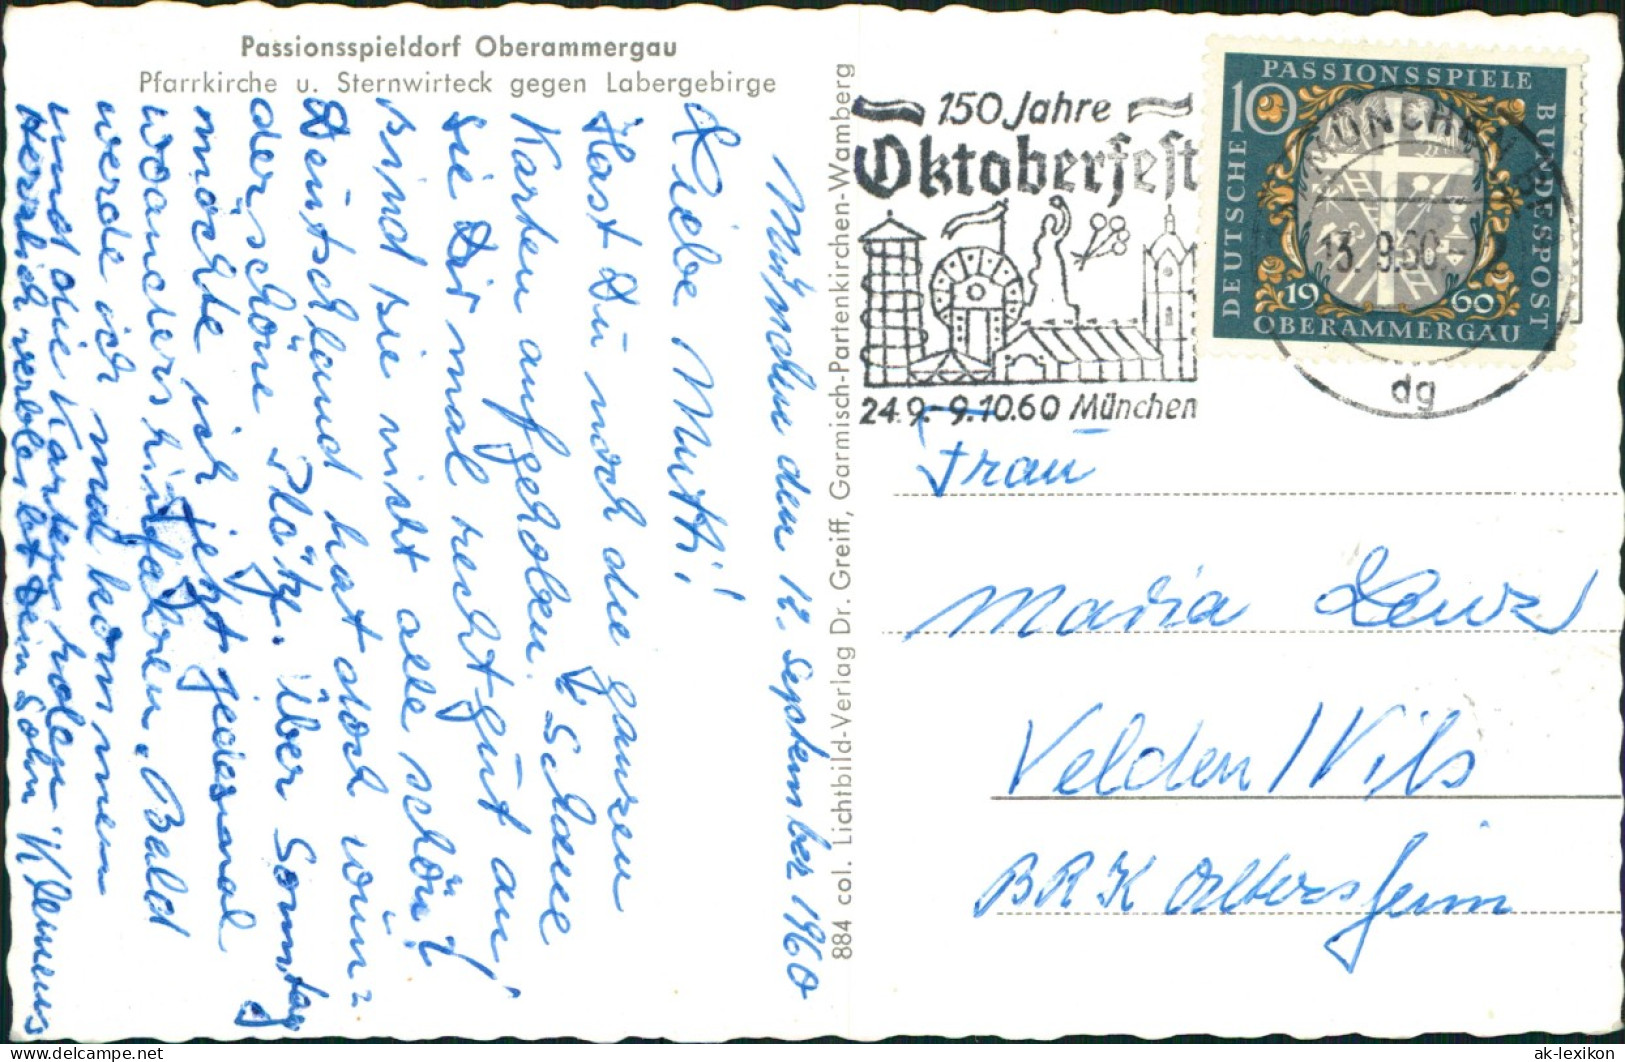 Passionsspieldorf Oberammergau
Pfarrkirche u. Sternwirteck gegen Labergebirge
München den 12. September 1960
Liebe Mutti!
Hast Du noch die ganzen
Karten aufgehoben? Schaue
sie Dir mal recht gut an!
Sind sie nicht alle schön?
Deutschland hat doch
der schöne Plätze. Über Sonntag
möchte ich jetzt jedesmal
woanders hinfahren. Bald
werde ich mal kommen
und die Karten holen
Herzlich verbleibt Dein Sohn Klemens
884 col. Lichtbild-Verlag Dr. Greiff, Garmisch-Partenkirchen-Wamberg
150 Jahre
Oktoberfest
24.9.-9.10.60 München
MÜNCHEN
13. 9.60
dg
10
PASSIONSSPIELE
DEUTSCHE BUNDESPOST
1960
OBERAMMERGAU
Frau
Maria
Velden/Vils
BRK Altersheim
www.delcampe.net
ak-lexikon